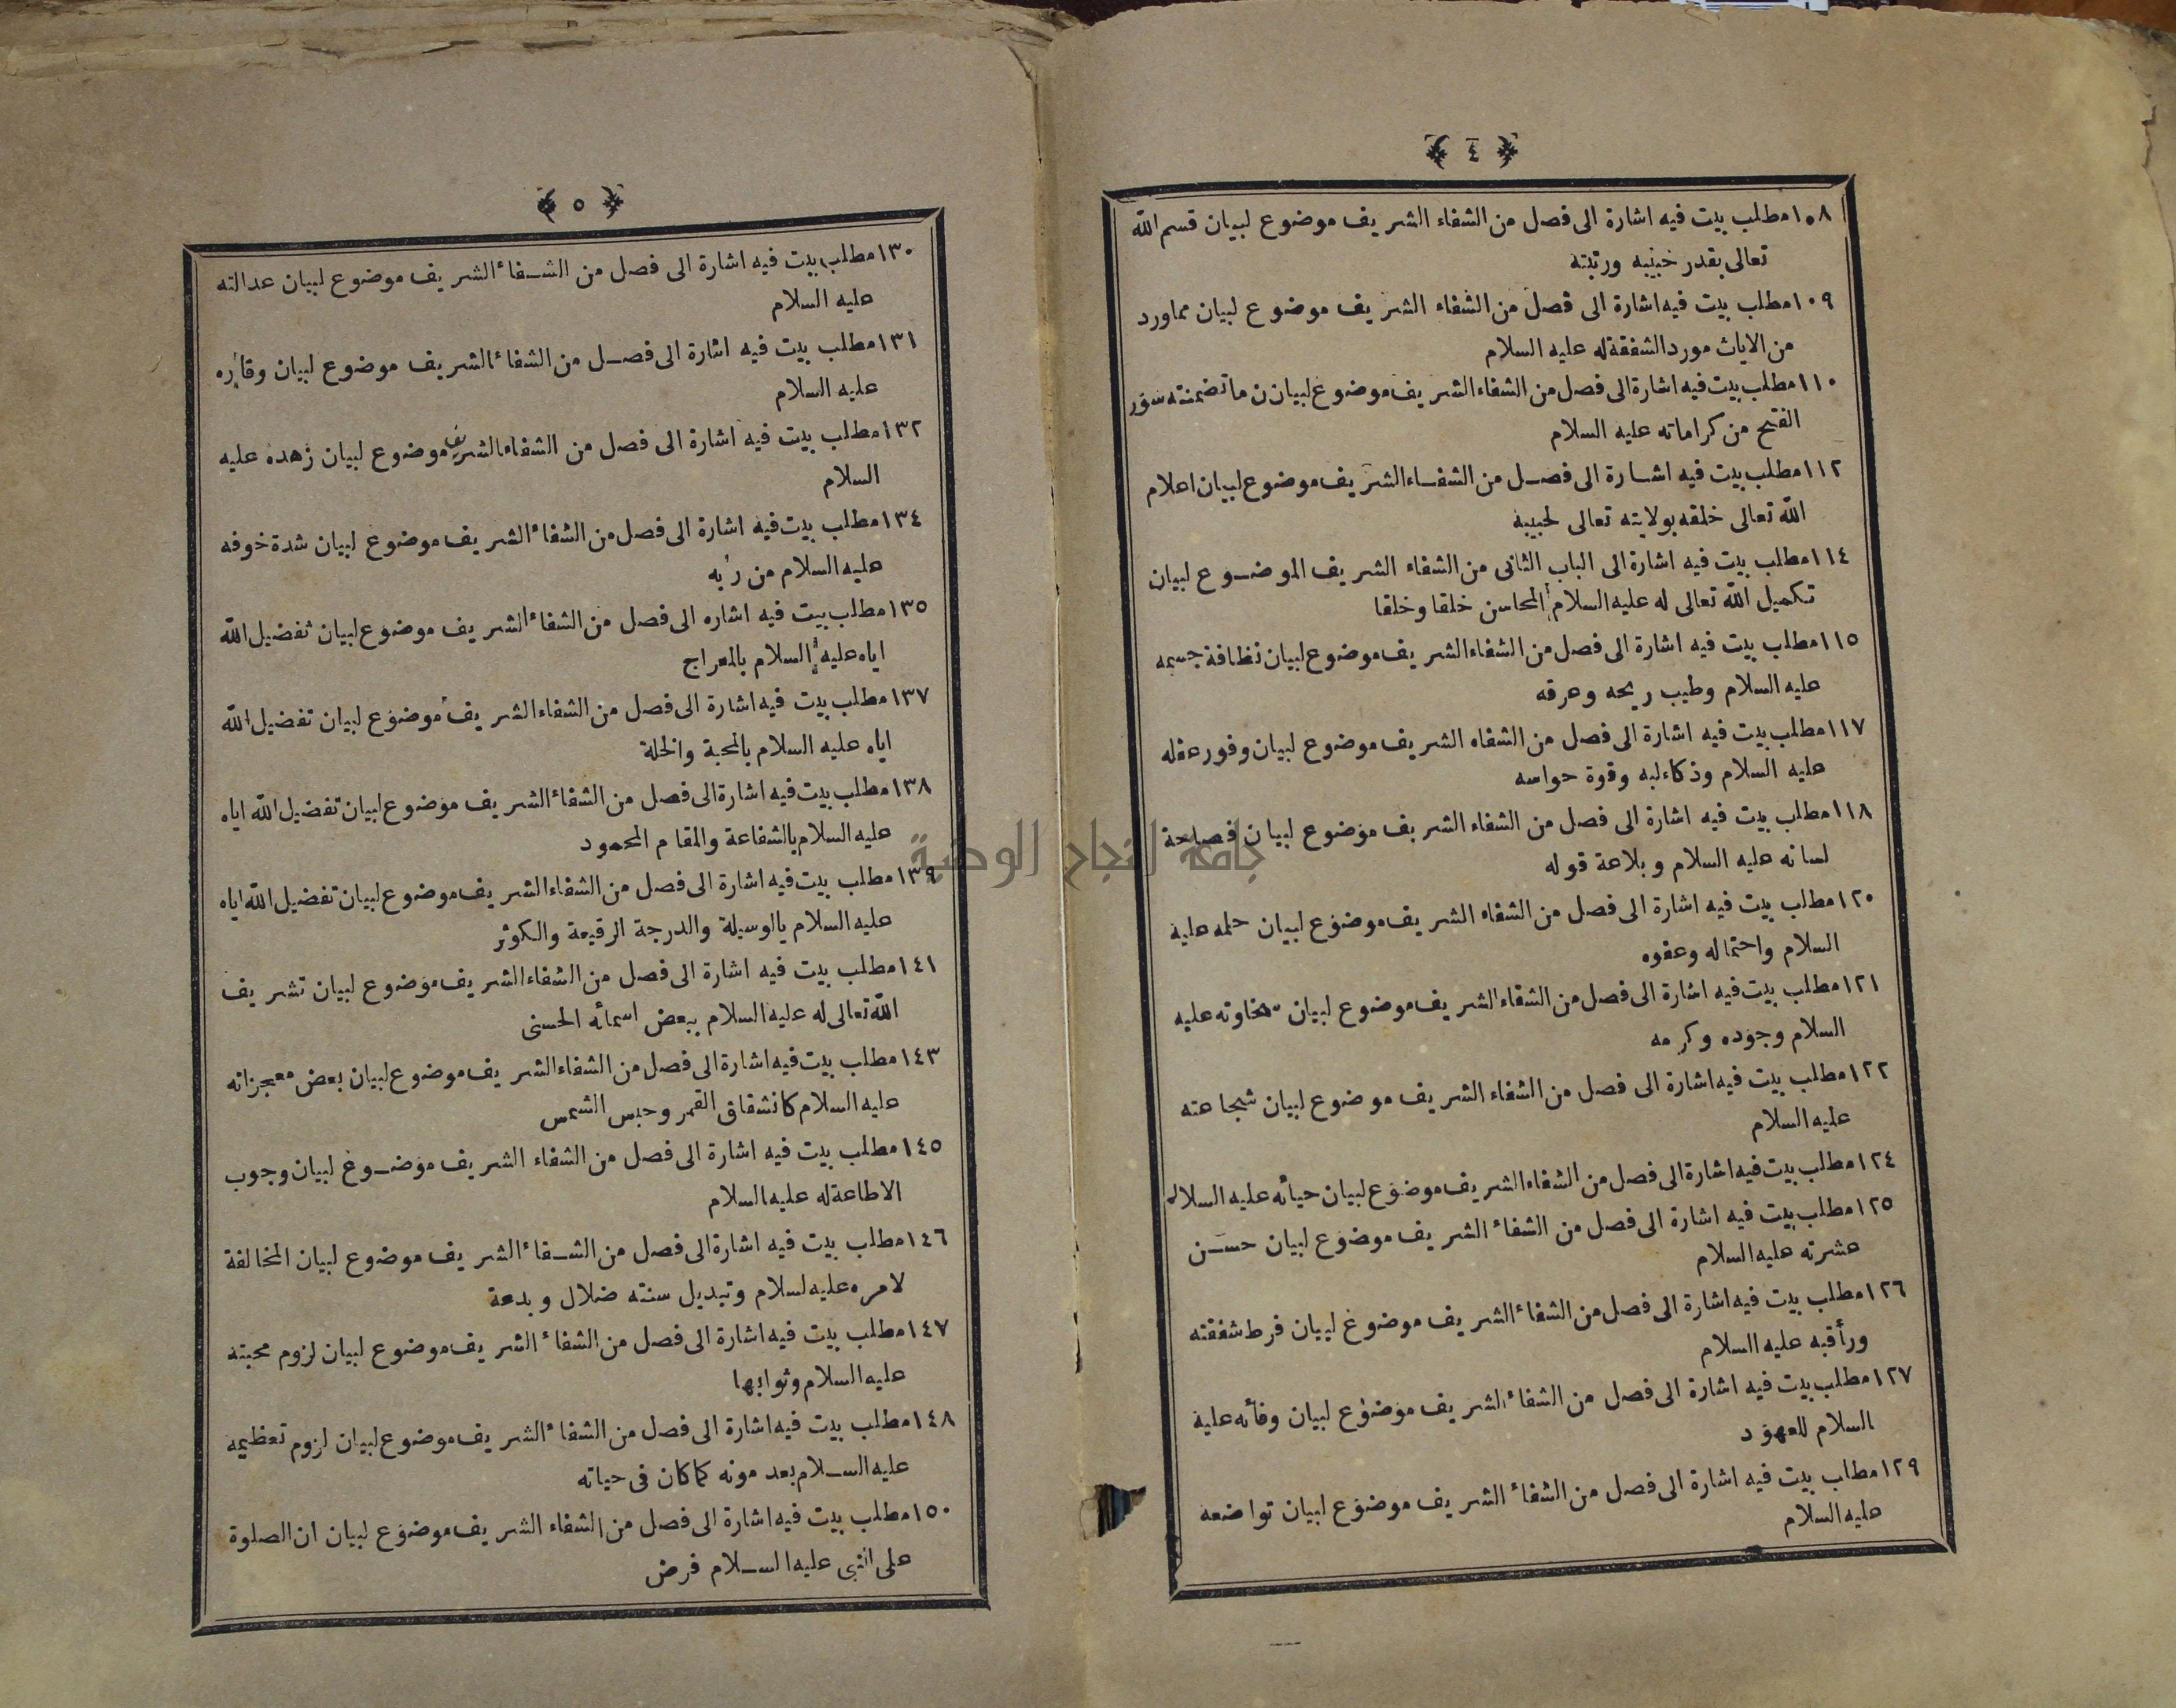 ﴿ ٤ ﴾
١٠٨ مطلب بيت فيه اشارة الى فصل من الشفاء الشريف موضوع لبيان قسم الله
تعالى بقدر حبيبه ورتبته
١٠٩ مطلب بيت فيه اشارة الى فصل من الشفاء الشريف موضوع لبيان مماورد
من الايات مورد الشفقة له عليه السلام
١١٠ مطلب بيت فيه اشارة الى فصل من الشفاء الشريف موضوع لبيان ن ماتضمنته سور
الفتح من كراماته عليه السلام
١١٢ مطلب بيت فيه اشارة الى فصل من الشفاء الشريف موضوع لبيان اعلام
الله تعالى خلقه بولايته تعالى لحبيبه
١١٤ مطلب بيت فيه اشارة الى الباب الثانى من الشفاء الشريف الموضوع لبيان
تكميل الله تعالى له عليه السلام المحاسن خلقا وخلقا
١١٥ مطلب بيت فيه اشارة الى فصل من الشفاء الشريف موضوع لبيان نظافة جسمه
عليه السلام وطيب ريحه وعرقه
١١٧ مطلب بيت فيه اشارة الى فصل من الشفاه الشريف موضوع لبيان وفور عقله
عليه السلام وذكاء لبه وقوة حواسه
١١٨ مطلب بيت فيه اشارة الى فصل من الشفاء الشريف موضوع لبيان فصاحة
لسانه عليه السلام وبلاعة قوله
١٢٠ مطلب بيت فيه اشارة الى فصل من الشفاه الشريف موضوع لبيان حلمه عليه
السلام واحتماله وعفوه
١٢١ مطلب بيت فيه اشارة الى فصل من الشفاء الشريف موضوع لبيان سخاوته عليه
السلام وجوده وكرمه
١٢٢ مطلب بيت فيه اشارة الى فصل من الشفاء الشريف موضوع لبيان شجاعته
عليه السلام
١٢٤ مطلب بيت فيه اشارة الى فصل من الشفاء الشريف موضوع لبيان حيائه عليه السلام
١٢٥ مطلب بيت فيه اشارة الى فصل من الشفاء الشريف موضوع لبيان حسن
عشرته عليه السلام
١٢٦ مطلب بيت فيه اشارة الى فصل من الشفاء الشريف موضوغ لبيان فرط شفقته
ورأفته عليه السلام
١٢٧ مطلب بيت فيه اشارة الى فصل من الشفاء الشريف موضوع لبيان وفائه عليه
السلام للعهود
١٢٩ مطاب بيت فيه اشارة الى فصل من الشفاء الشريف موضوع لبيان تواضعه
عليه السلام
﴿ ٥ ﴾
١٣٠ مطلب بيت فيه اشارة الى فصل من الشفاء الشريف موضوع لبيان عدالته
عليه السلام
١٣١ مطلب بيت فيه اشارة الى فصل من الشفاء الشريف موضوع لبيان وقاره
عليه السلام
١٣٢ مطلب بيت فيه اشارة الى فصل من الشفاء الشريف موضوع لبيان زهده عليه
السلام
١٣٤ مطلب بيت فيه اشارة الى فصل من الشفاء الشريف موضوع لبيان شدة خوفه
عليه السلام من ربه
١٣٥ مطلب بيت فيه اشاره الى فصل من الشفاء الشريف موضوع لبيان تفضيل الله
اياه عليه السلام بالمعراج
١٣٧ مطلب بيت فيه اشارة الى فصل من الشفاء الشريف موضوع لبيان تفضيل الله
اياه عليه السلام بالمحبة والخلة
١٣٨ مطلب بيت فيه اشارة الى فصل من الشفاء الشريف موضوع لبيان تفضيل الله اياه
عليه السلام بالشفاعة والمقام المحمود
١٣٩ مطلب بيت فيه اشارة الى فصل من الشفاء الشريف موضوع لبيان تفضيل الله اياه
عليه السلام بالوسيلة والدرجة الرفيعة والكوثر
١٤١ مطلب بيت فيه اشارة الى فصل من الشفاء الشريف موضوع لبيان تشريف
الله تعالى له عليه السلام ببعض اسمائه الحسنى
١٤٣ مطلب بيت فيه اشارة الى فصل من الشفاء الشريف موضوع لبيان بعض معجزاته
عليه السلام كانشقاق القمر وحبس الشمس
١٤٥ مطلب بيت فيه اشارة الى فصل من الشفاء الشريف موضوغ لبيان وجوب
الاطاعة له عليه السلام
١٤٦ مطلب بيت فيه اشارة الى فصل من الشفاء الشريف موضوع لبيان المخالفة
لامره عليه لسلام وتبديل سنته ضلال وبدعة
١٤٧ مطلب بيت فيه اشارة الى فصل من الشفاء الشريف موضوع لبيان لزوم محبته
عليه السلام وثوابها
١٤٨ مطلب بيت فيه اشارة الى فصل من الشفاء الشريف موضوع لبيان لزوم تعظيمه
عليه السلام بعد موته كما كان فى حياته
١٥٠ مطلب بيت فيه اشارة الى فصل من الشفاء الشريف موضوع لبيان ان الصلوة
على النبى عليه السلام فرض
جامعة النجاح الوطنية